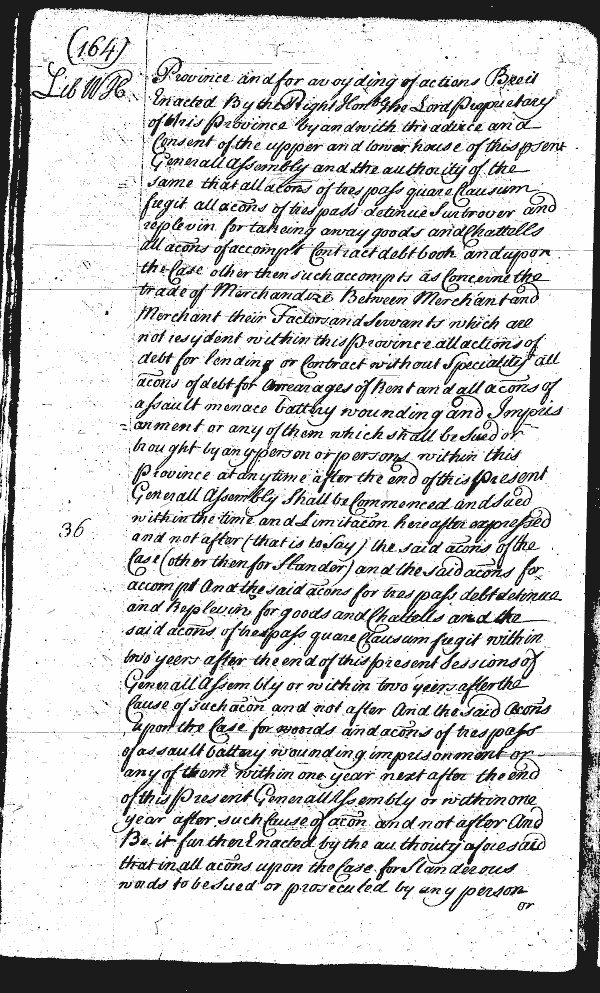 (164)
Lib WH
Province and for avoyding of actions Bee it
Enacted By the Right Honble the Lord Proprietary
of this Province by and with the advice and
Consent of the upper and lower house of this psent
Generall Assembly and the authority of the
same that all acons of trespass quare Clausum
fregit all acons of trespass detenue Sur trover and
replevin for takeing away goods and Chattells
all acons of accompt Contract debt book and upon
the Case other then such accompts as Concerne the
trade of Merchandize Between Merchant and
Merchant their Factors and Servants which are
not resydent within this Province all actions of
debt for lending or Contract without Speciality all
acons of debt for Arrearages of Rent and all acons of
assault menace battery wounding and Impris
onment or any of them which shall be Sued or
brought by any person or persons within this
Province at any time after the end of this present
Generall Assembly Shall be Commenced and Sued
within the time and Limitacon hereafter expressed
36
and not after (that is to Say) the said acons of the
Case (other then for Slander) and the said acons for
accompt And the said acons for trespass debt detinue
and Replevin for goods and Chattells and the
said acons of trespass quare Clausum fregit within
two yeers after the end of this present Sessions of
Generall Assembly or within two yeers after the
Cause of such acon and not after And the said Acons
upon the Case for words and acons of trespass
of assault battery wounding imprisonment or
any of them within one year next after the end
of this Present Generall Assembly or within one
year after such Cause of acon and not after And
Be it further Enacted by the authority aforesaid
that in all acons upon the Case for Slanderous
words to be Sued or prosecuted by any person
or